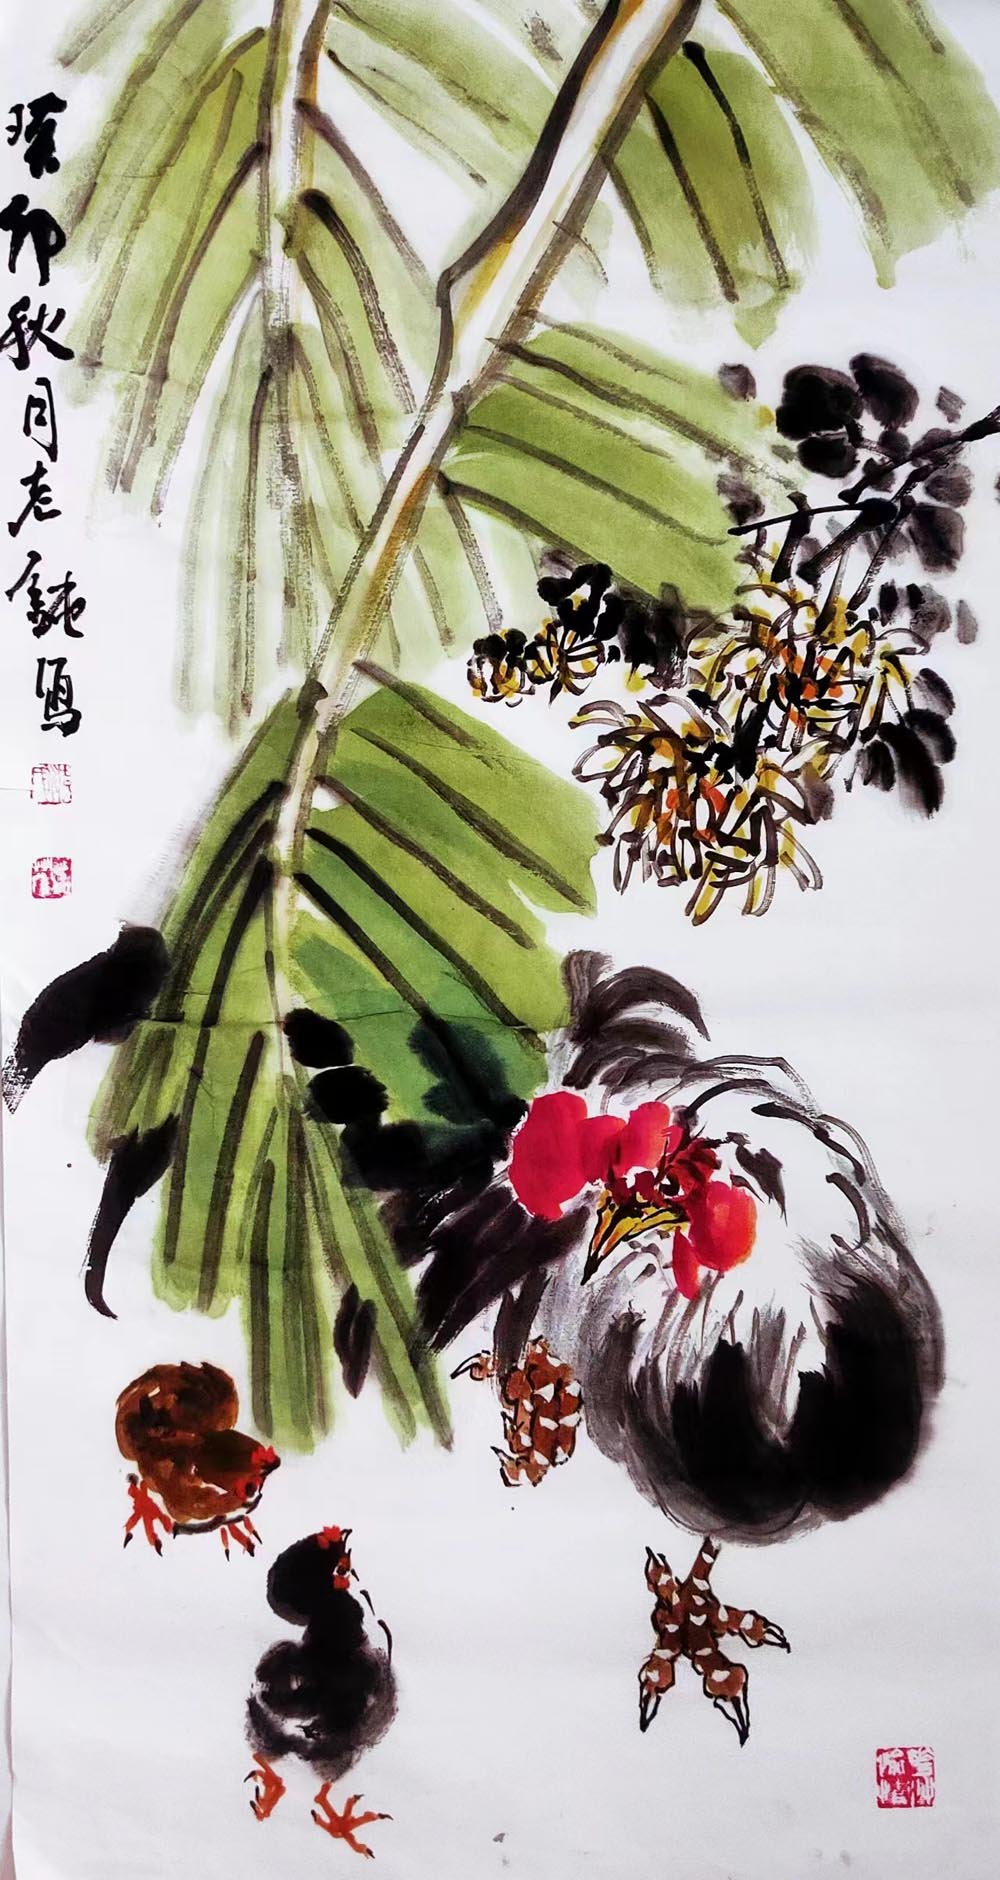 癸卯秋月老鈍寫